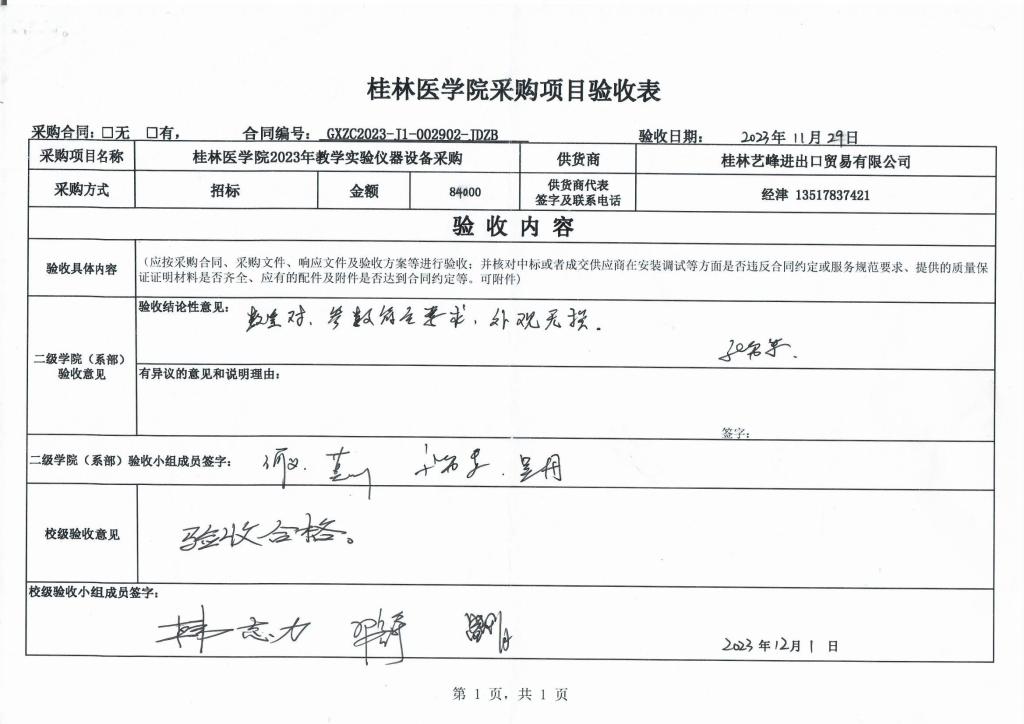 桂林医学院采购项目验收表
采购合同：□无 □有， 合同编号： GXZC2023-J1-002902-JDZB 验收日期： 2023年11月29日
采购项目名称 桂林医学院2023年教学实验仪器设备采购 供货商 桂林艺峰进出口贸易有限公司
采购方式 招标 金额 84000 供货商代表
签字及联系电话 经津 13517837421
验 收 内 容
验收具体内容
（应按采购合同、采购文件、响应文件及验收方案等进行验收；并核对中标或者成交供应商在安装调试等方面是否违反合同约定或服务规范要求、提供的质量保
证证明材料是否齐全、应有的配件及附件是否达到合同约定等。可附件）
二级学院（系部）
验收意见
验收结论性意见：
数量对、参数符合要求，外观无损．
有异议的意见和说明理由：
签字：
二级学院（系部）验收小组成员签字：
校级验收意见
验收合格。
校级验收小组成员签字：
韩志力
2023年12月1日
第 1 页，共 1 页